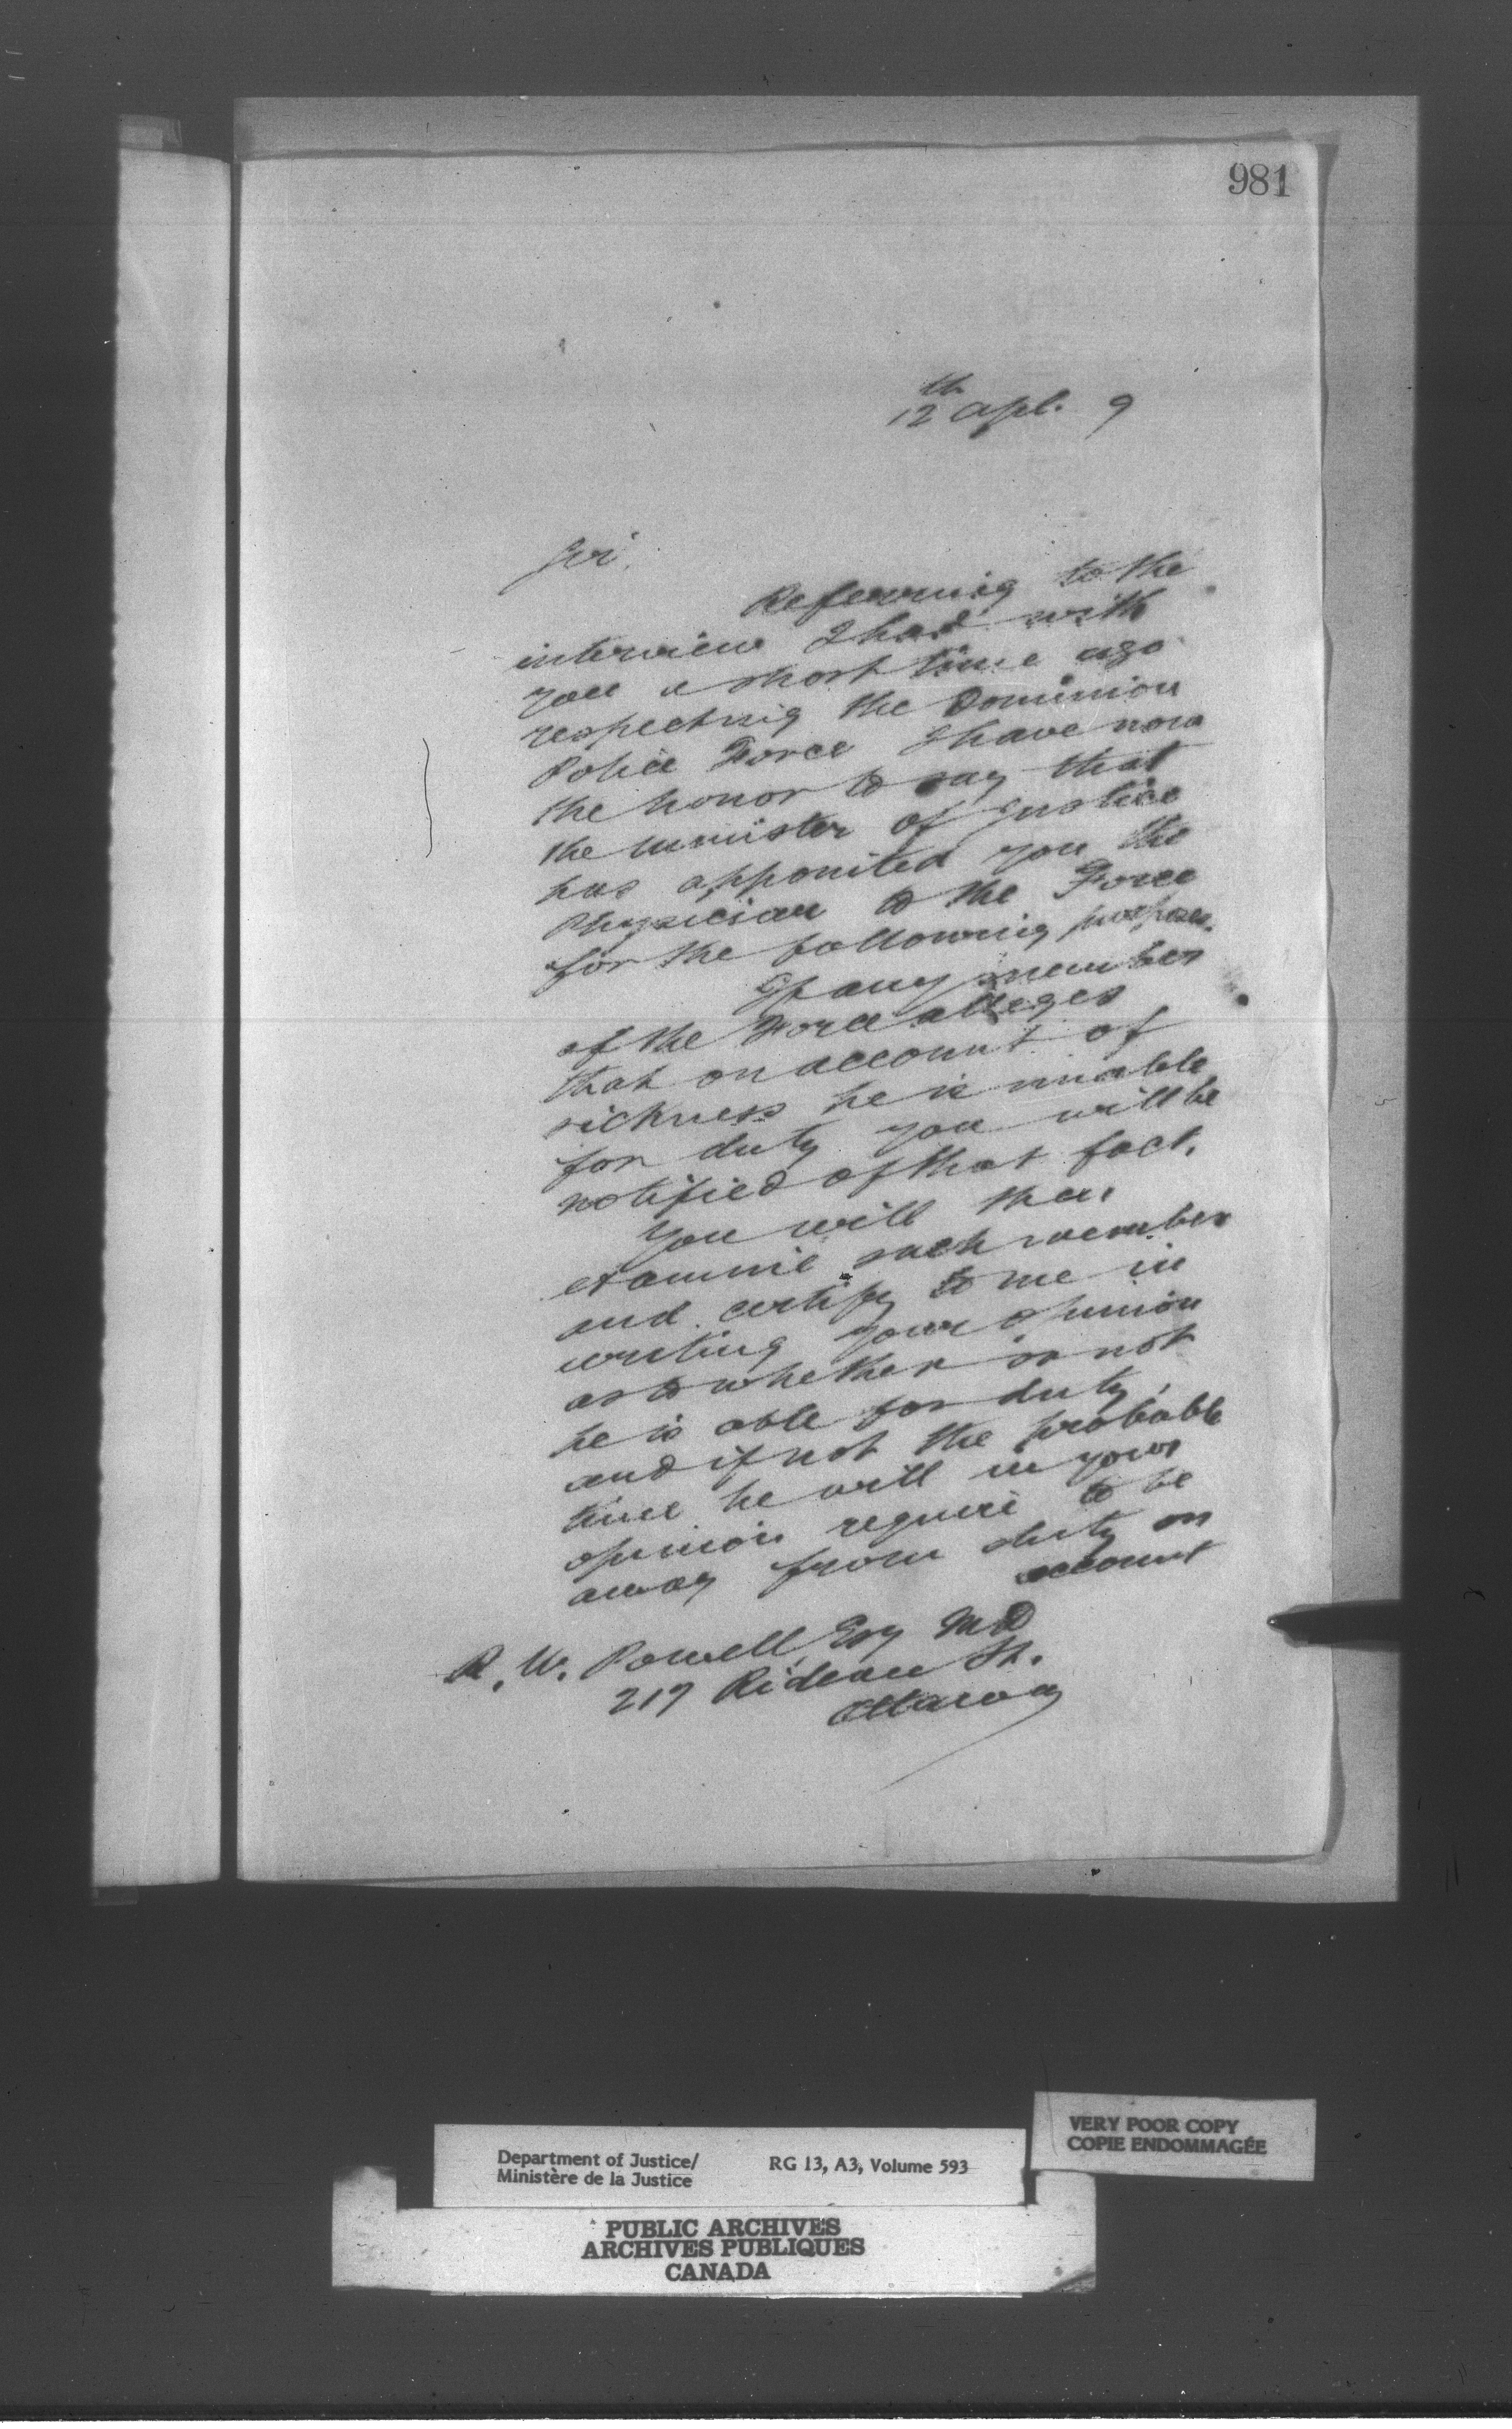 981
12th Apl. 9
Sir.
Referring to the
interview I had with
you a short time ago
respecting the Dominion
Police Force I have now
the honor to say that
the Minister of Justice
has appointed you the
Physician to the Force
for the following purposes.
If any member
of the Force alleges
that on account of
sickness he is unable
for duty you will be
notified of that fact.
You will then
examine such member
and certify to me in
writing your opinion
as to whether or not
he is able for duty,
and if not the probable
time he will in your
opinion require to be
away from duty on
account
R. W. Powell, Esq M.D
217 Rideau St.
Ottawa
VERY POOR COPY
COPIE ENDOMMAGÉE
Department of Justice/ RG 13, A3, Volume 593
Ministère de la Justice
PUBLIC ARCHIVES
ARCHIVES PUBLIQUES
CANADA